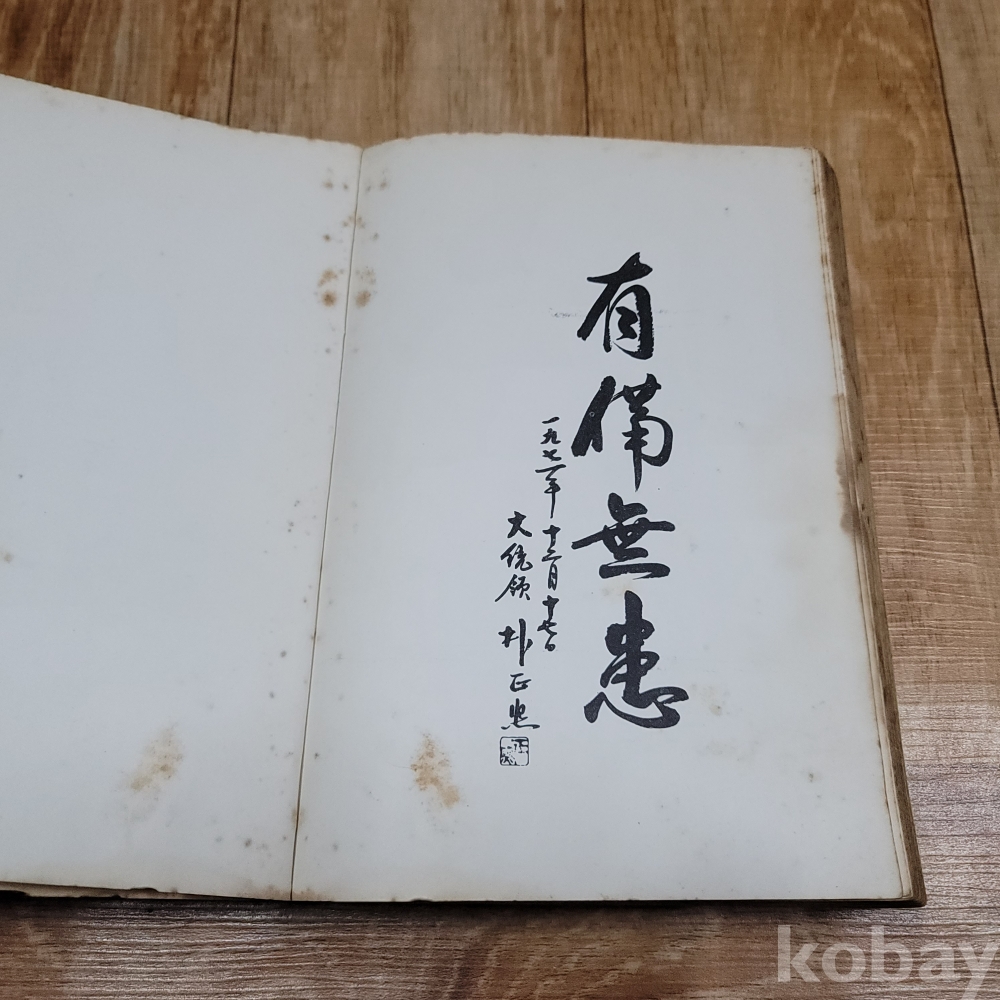 有備無患
一九七一年 十二月 十七日
大統領 朴正熙
kobay